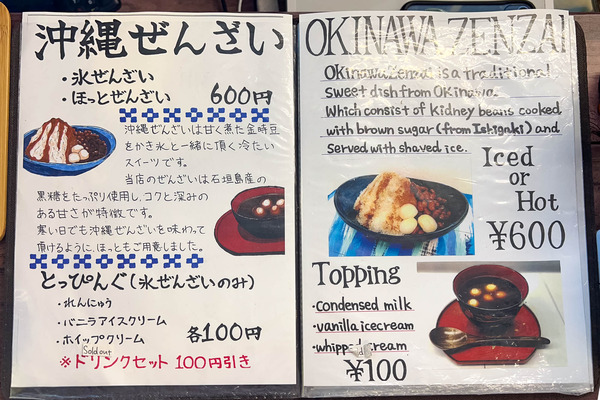 沖縄ぜんざい
・氷ぜんざい
・ほっとぜんざい 600円
沖縄ぜんざいは甘く煮た金時豆
をかき氷と一緒に頂く冷たい
スイーツです。
当店のぜんざいは石垣島産の
黒糖をたっぷり使用し、コクと深みの
ある甘さが特徴です。
寒い日でも沖縄ぜんざいを味わって
頂けるように、ほっともご用意しました。
とっぴんぐ(氷ぜんざいのみ)
・れんにゅう
・バニラアイスクリーム
・ホイップクリーム 各100円
Sold out
※ドリンクセット 100円引き
OKINAWA ZENZAI
Okinawa Zenzai is a traditional
sweet dish from Okinawa.
Which consist of Kidney beans cooked
with brown sugar (from Ishigaki) and
served with shaved ice.
Iced
or
Hot
¥600
Topping
・condensed milk
・vanilla icecream
・whipped cream
¥100